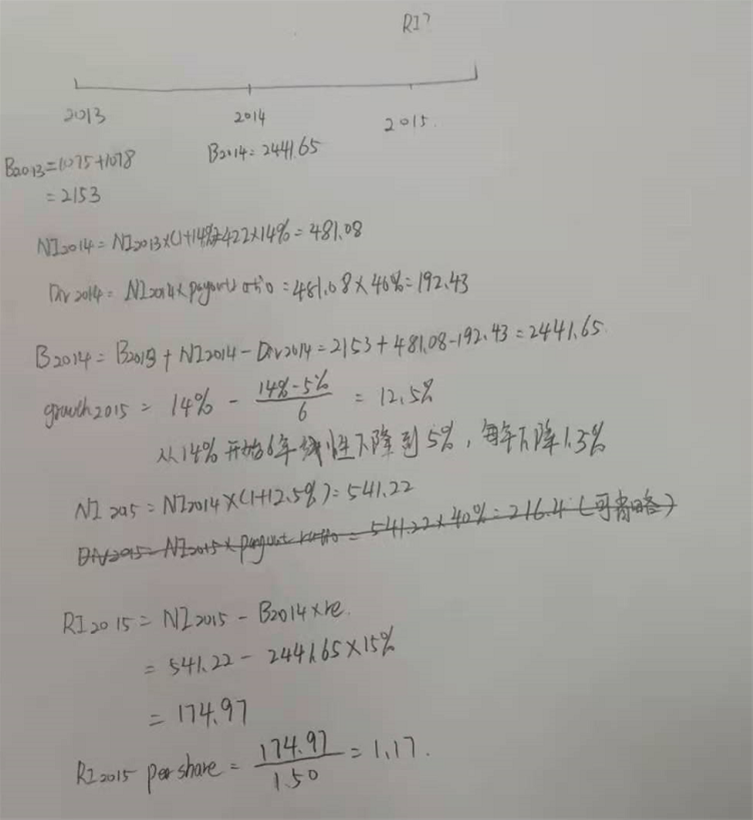 RI?
2013 2014 2015.
B2013=1075+1078
=2153
B2014=2441.65
NI2014=NI2013×(1+14%)=422×14%=481.08
Div2014=NI2014×payout ratio=481.08×40%=192.43
B2014=B2013+NI2014-Div2014=2153+481.08-192.43=2441.65
growth2015=14%-(14%-5%)/6=12.5%
从14%开始6年线性下降到5%,每年下降1.5%
NI2015=NI2014×(1+12.5%)=541.22
Div2015=NI2015×payout ratio=541.22×40%=216.4(可省略)
RI2015=NI2015-B2014×re.
=541.22-2441.65×15%
=174.97
RI2015 per share=174.97/150=1.17.